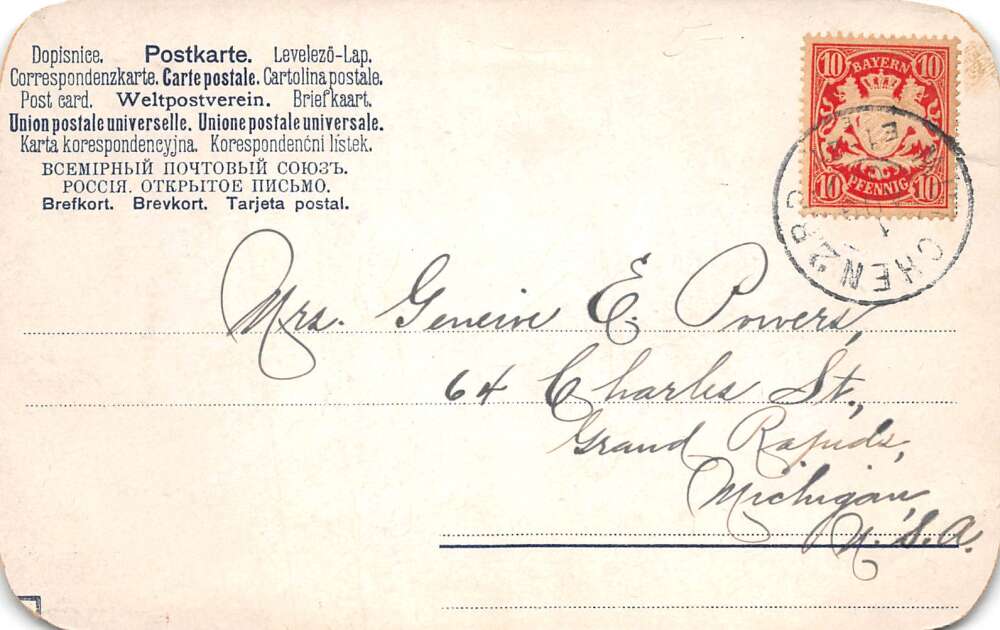 Dopisnice. Postkarte. Levelező-Lap.
Correspondenzkarte. Carte postale. Cartolina postale.
Post card. Weltpostverein. Briefkaart.
Union postale universelle. Unione postale universale.
Karta korespondencyjna. Korespondenční lístek.
ВСЕМІРНЫЙ ПОЧТОВЫЙ СОЮЗЪ.
РОССІЯ. ОТКРЫТОЕ ПИСЬМО.
Brefkort. Brevkort. Tarjeta postal.
10 BAYERN 10
10 PFENNIG 10
CHEN 2 B
1
Mrs. Geneive E. Powers,
64 Charles St.,
Grand Rapids,
Michigan,
U.S.A.